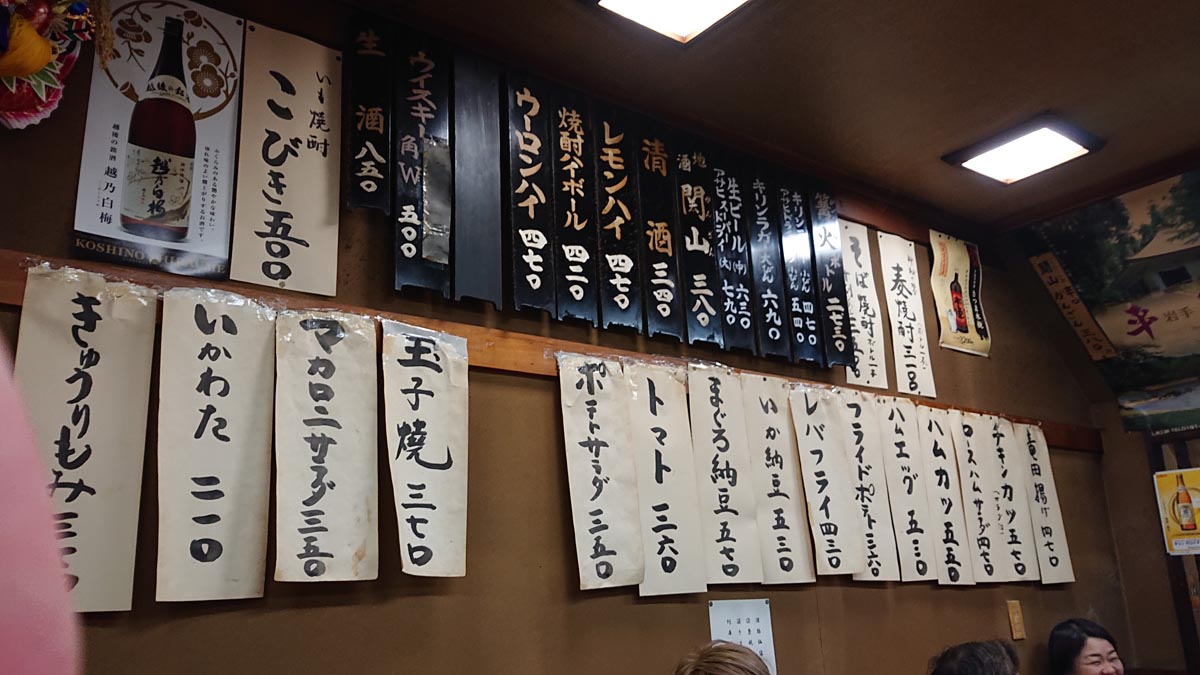 越後の銘酒 越乃白梅
越乃白梅
KOSHINO
いも焼酎
こびき 五〇〇
生酒 八五〇
ウイスキー 角W 五〇〇
ウーロンハイ 四七〇
焼酎ハイボール 四二〇
レモンハイ 四七〇
清酒 三四〇
地酒 関山 三八〇
生ビール(中) 六三〇
アサヒスーパードライ(大) 七九〇
キリンラガー大びん 六九〇
そば焼酎
麦焼酎
きゅうりもみ
いかわた 二一〇
マカロニサラダ 三五〇
玉子焼 三七〇
ポテトサラダ 三五〇
トマト 三六〇
まぐろ納豆 五七〇
いか納豆 五三〇
レバフライ 四三〇
フライドポテト 三六〇
ハムエッグ 五三〇
ハムカツ 五五〇
ロースハムサラダ 四七〇
チキンカツ 五七〇
竜田揚げ 四七〇
岩手